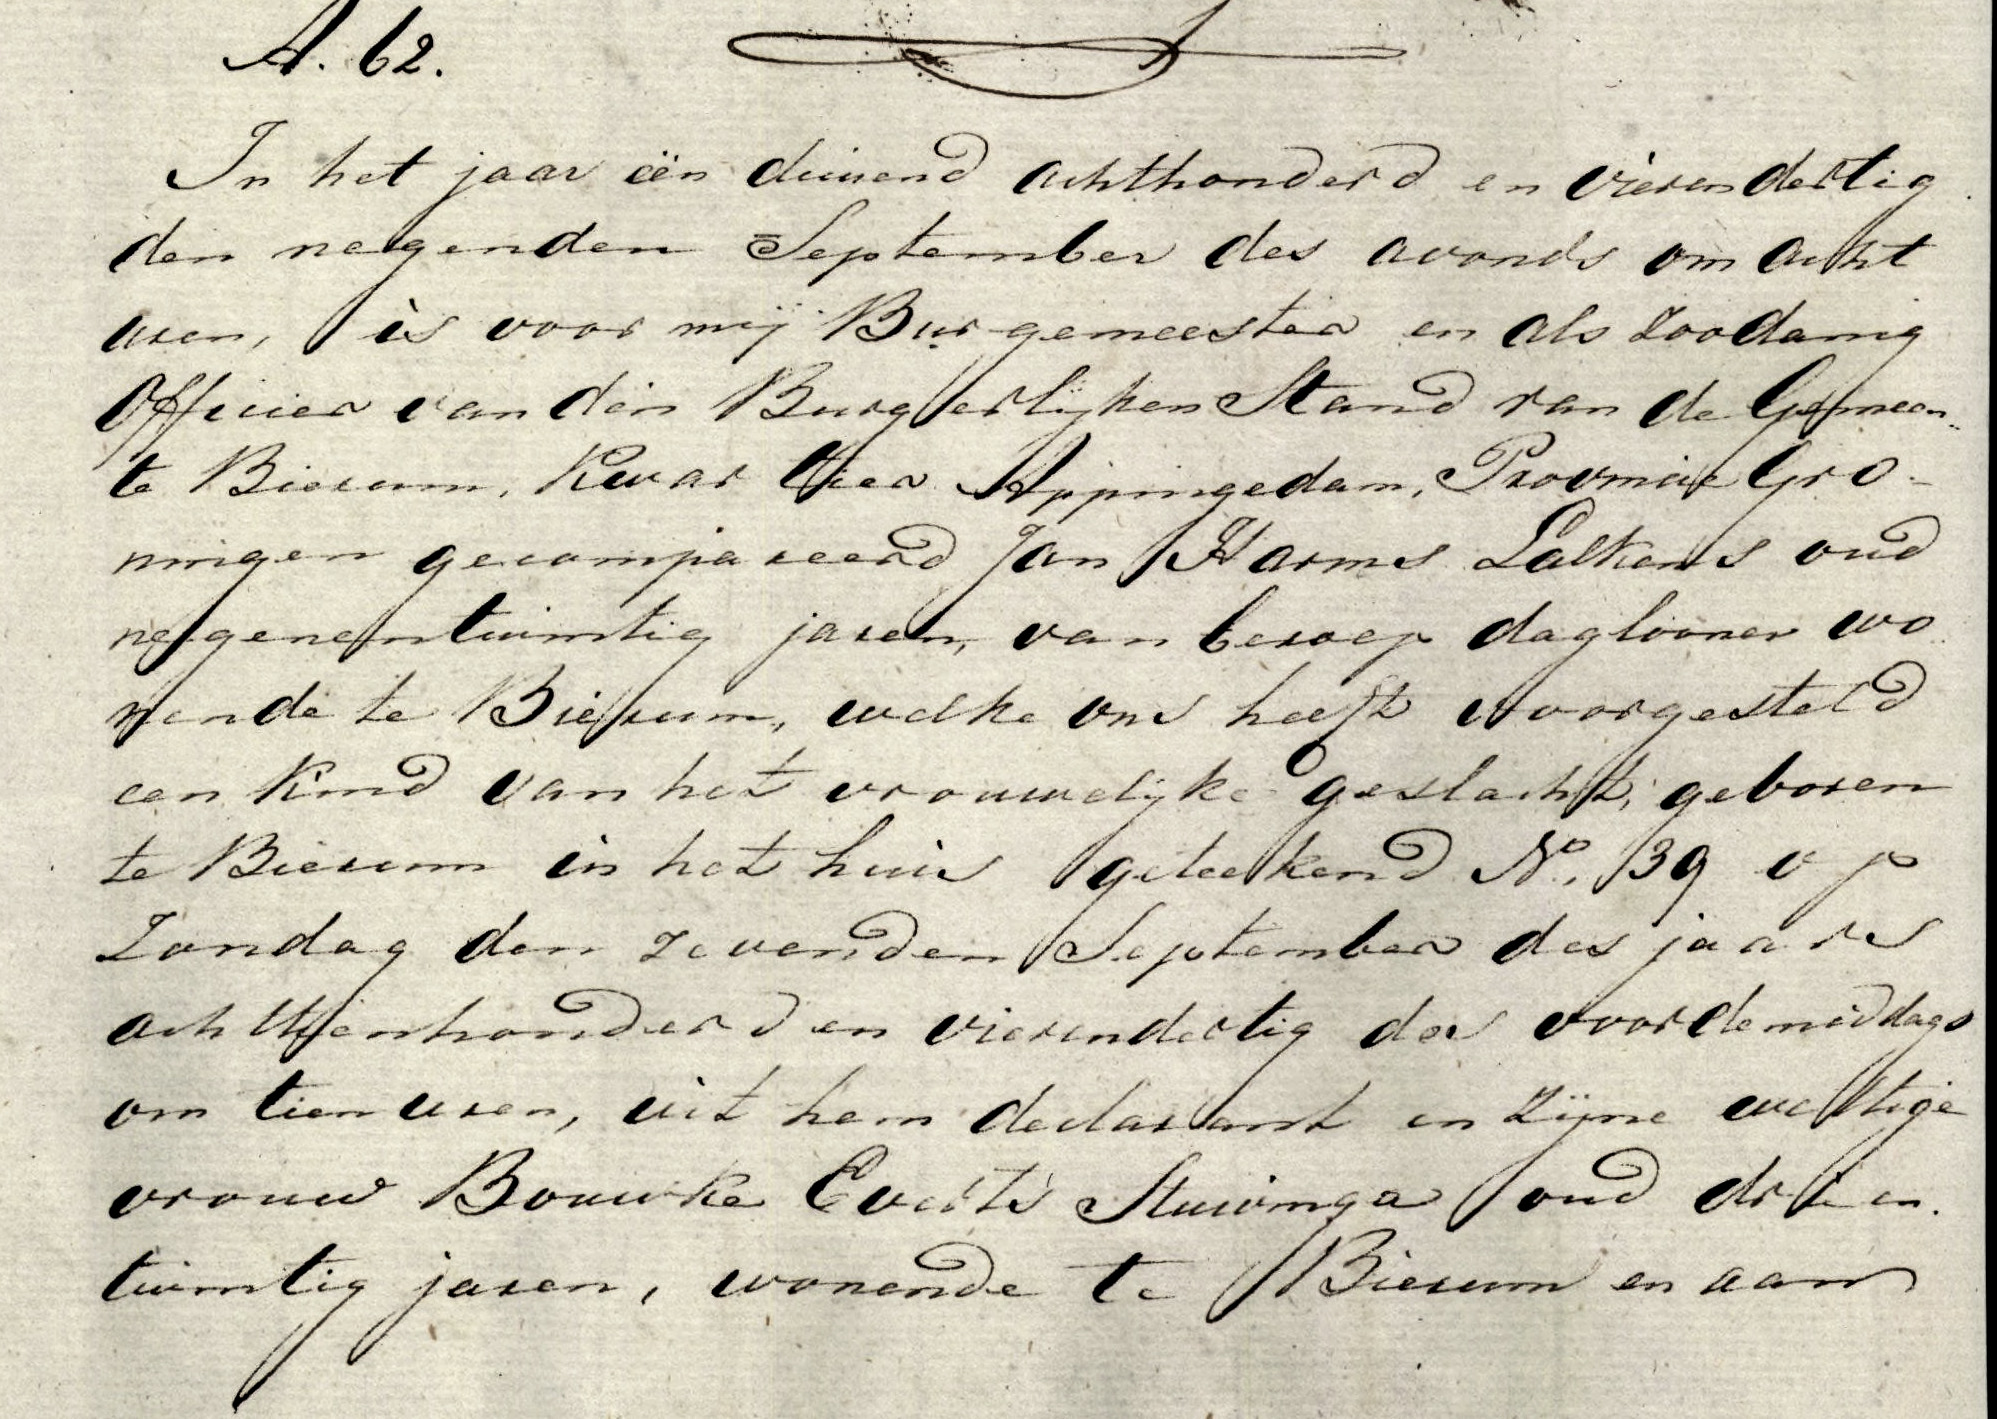 A. 62.
In het jaar één duizend achthonderd en vierendertig
den negenden September des avonds om acht
uren, is voor mij Burgemeester en als zoodanig
Officier van den Burgerlijken Stand van de Gemeen-
te Bierum, Kwartier Appingedam, Provincie Gro-
ningen gecompareerd Jan Harms Lalkens oud
negenentwintig jaren, van beroep daglooner wo
nende te Bierum, welke ons heeft voorgesteld
een kind van het vrouwelijke geslacht, geboren
te Bierum in het huis geteekend No. 39 op
Zondag den zevenden September des jaars
achttienhonderd en vierendertig des voordemiddags
om tien uren, uit hem declarant en zijne wettige
vrouw Bouwke Everts Stuivinga oud drieen-
twintig jaren, wonende te Bierum en aan